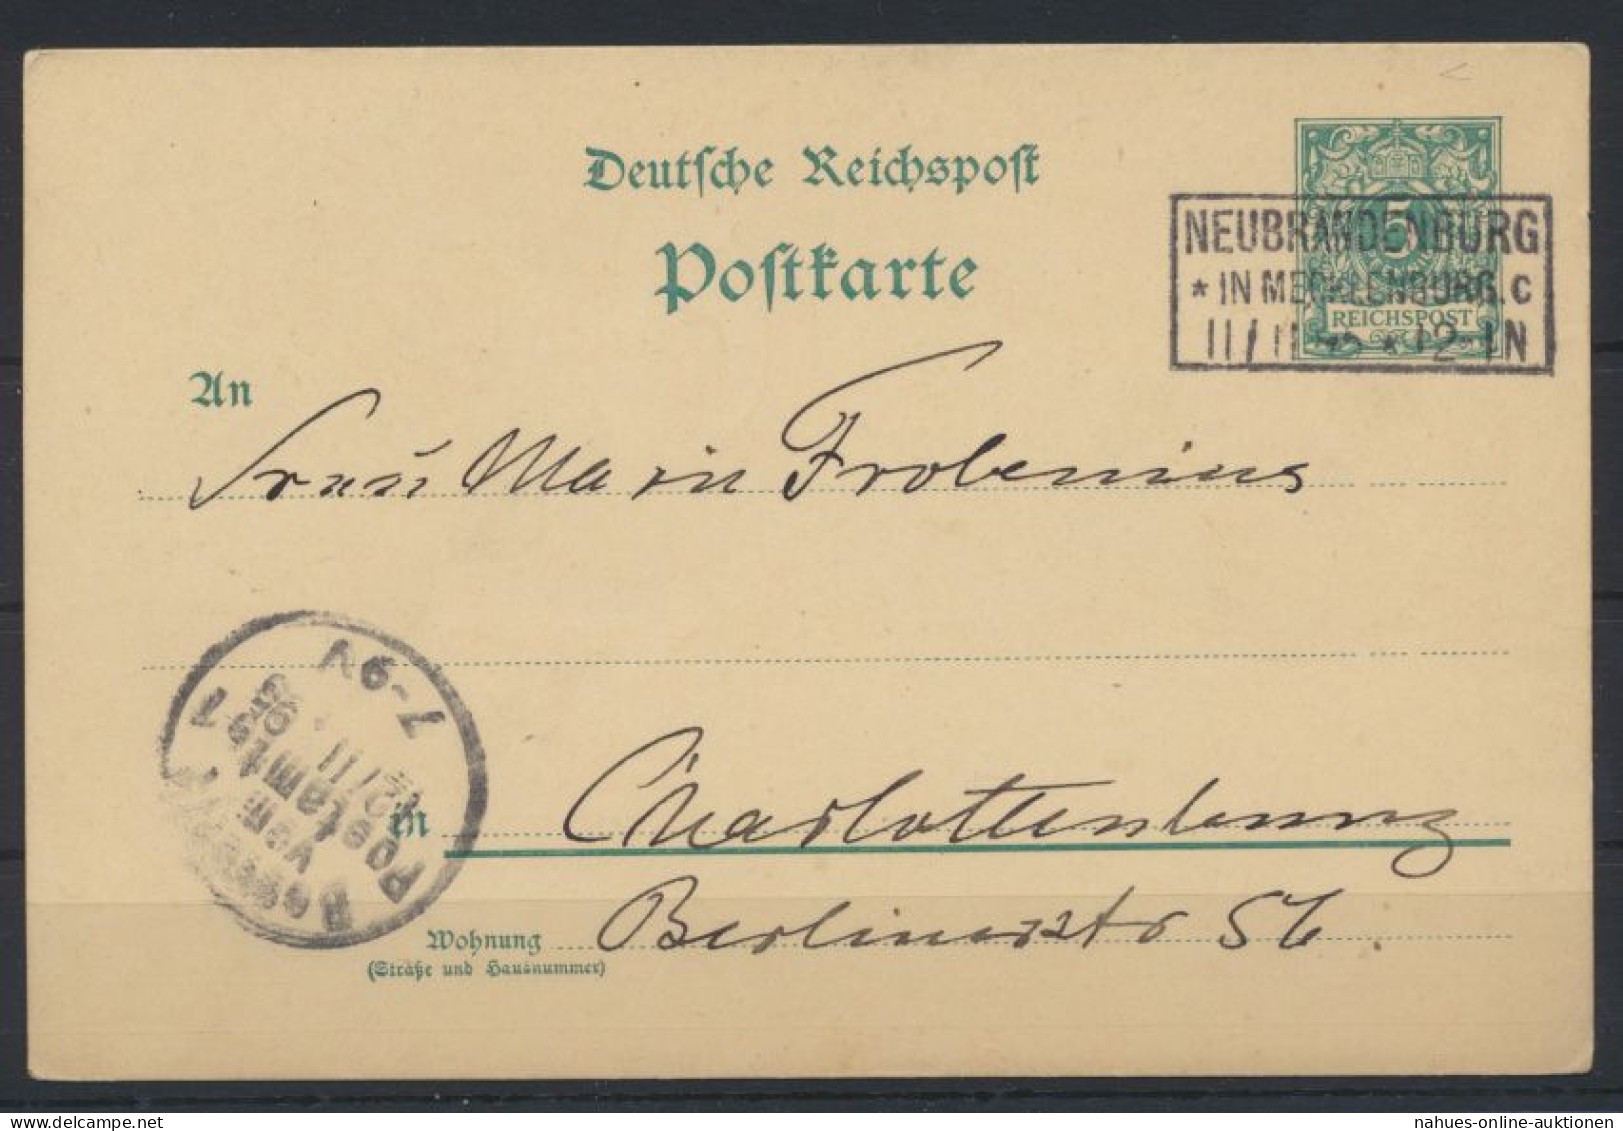 Deutsche Reichspost
Postkarte
5
REICHSPOST
NEUBRANDENBURG
* IN MECKLENBURG. C
11/11 * 12-1N
An
Frau Frobenius
in Charlottenburg
Wohnung Berlinerstr 56.
(Straße und Hausnummer)
Bestellt
vom
Postamt
12/11
7-9V
nahues-online-auktionen